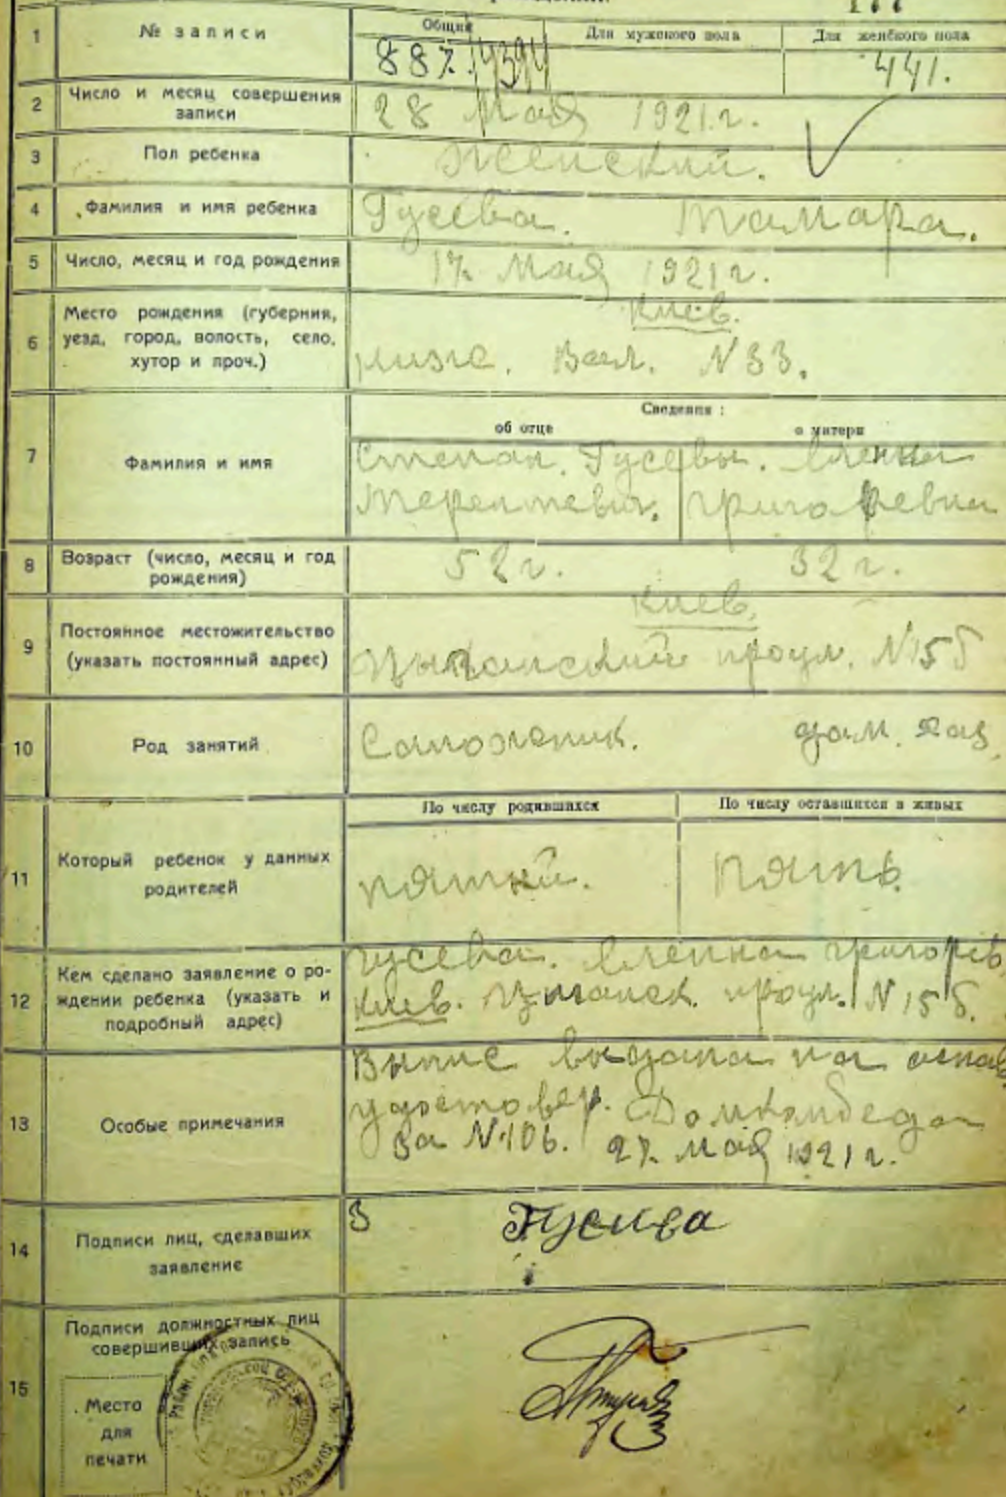 177
1
№ записи
Общий
Для мужского пола
Для женского пола
887.
441.
2
Число и месяц совершения
записи
28 Мая 1921 г.
3
Пол ребенка
Женский.
4
Фамилия и имя ребенка
Гусева. Тамара.
5
Число, месяц и год рождения
17 Мая 1921 г.
6
Место рождения (губерния,
уезд, город, волость, село,
хутор и проч.)
Киев.
Вал. N 33.
Сведения:
об отце
о матери
7
Фамилия и имя
Степан. Гусевы. Еленна
Терентевич. григоревна
8
Возраст (число, месяц и год
рождения)
52 г. 32 г.
9
Постоянное местожительство
(указать постоянный адрес)
Киев.
Цыганский проул. N 15 б
10
Род занятий
Сапожник. дом. хаз
По числу родившихся
По числу оставшихся в живых
11
Который ребенок у данных
родителей
пятый. пять.
12
Кем сделано заявление о ро-
ждении ребенка (указать и
подробный адрес)
гусева. Еленна григорев
Киев. Цыганск. проул. N 15 б.
13
Особые примечания
Выпис выдана на основ
удостовер. Домкомбеда
за N 106. 27. Мая 1921 г.
14
Подписи лиц, сделавших
заявление
Гусива
15
Подписи должностных лиц
совершивших запись
Место
для
печати